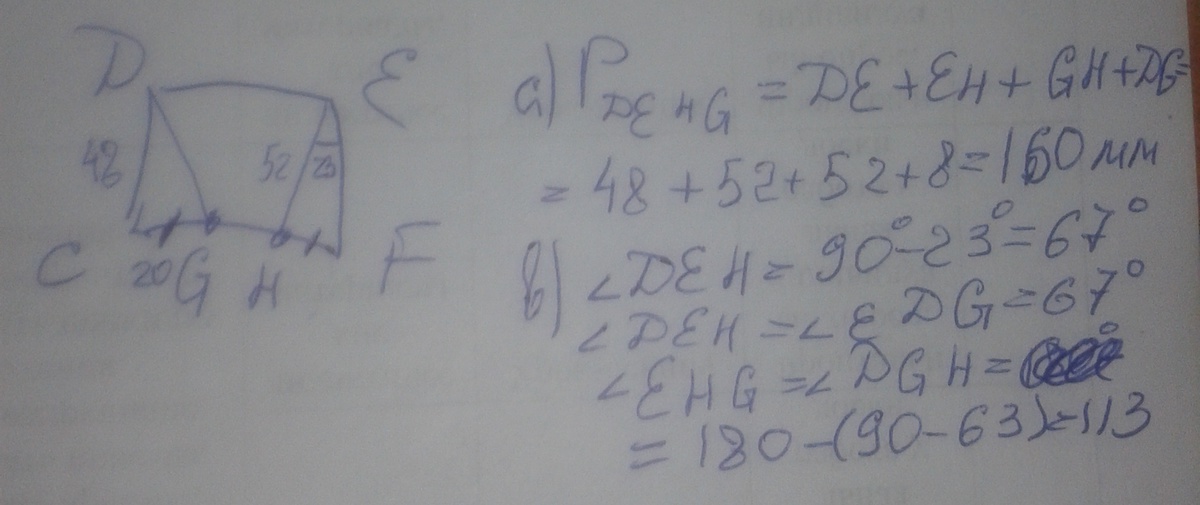 D
E
48
52
23
C
20
G
H
F
a) P DEHG = DE + EH + GH + DG =
= 48 + 52 + 52 + 8 = 160 мм
в) ∠DEH = 90° - 23° = 67°
∠DEH = ∠EDG = 67°
∠EHG = ∠DGH =
= 180 - (90 - 63) = 113